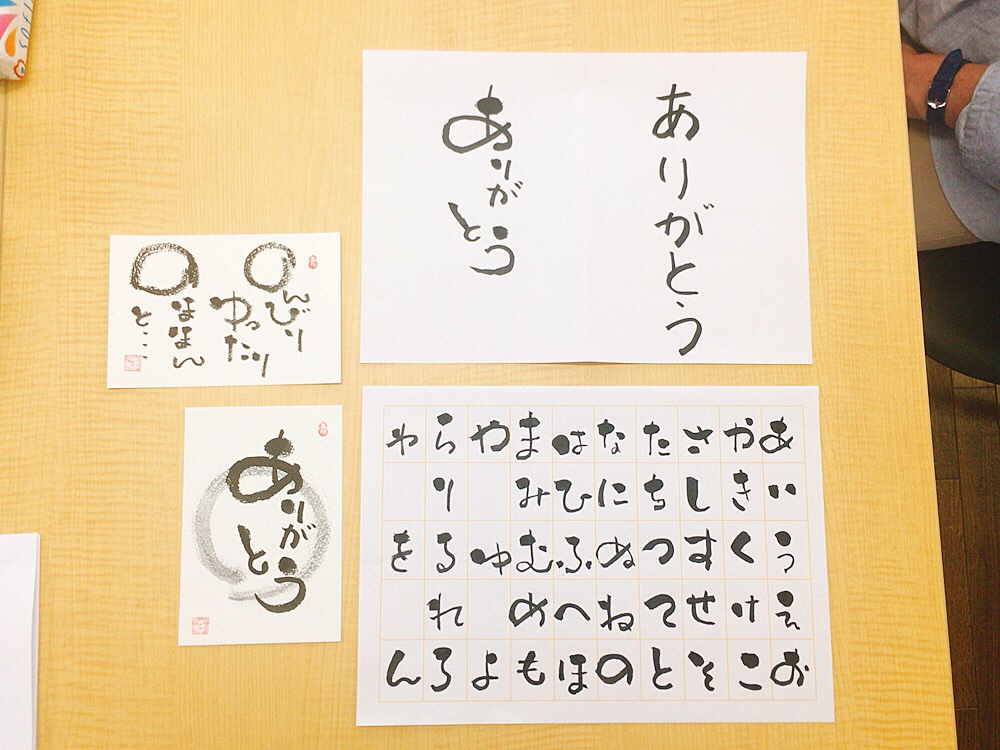 ありがとう
ありがとう
のんびり
ゆったり
のほほん
と...
ありがとう
あいうえお
かきくけこ
さしすせそ
たちつてと
なにぬねの
はひふへほ
まみむめも
やゆよ
らりるれろ
わをん